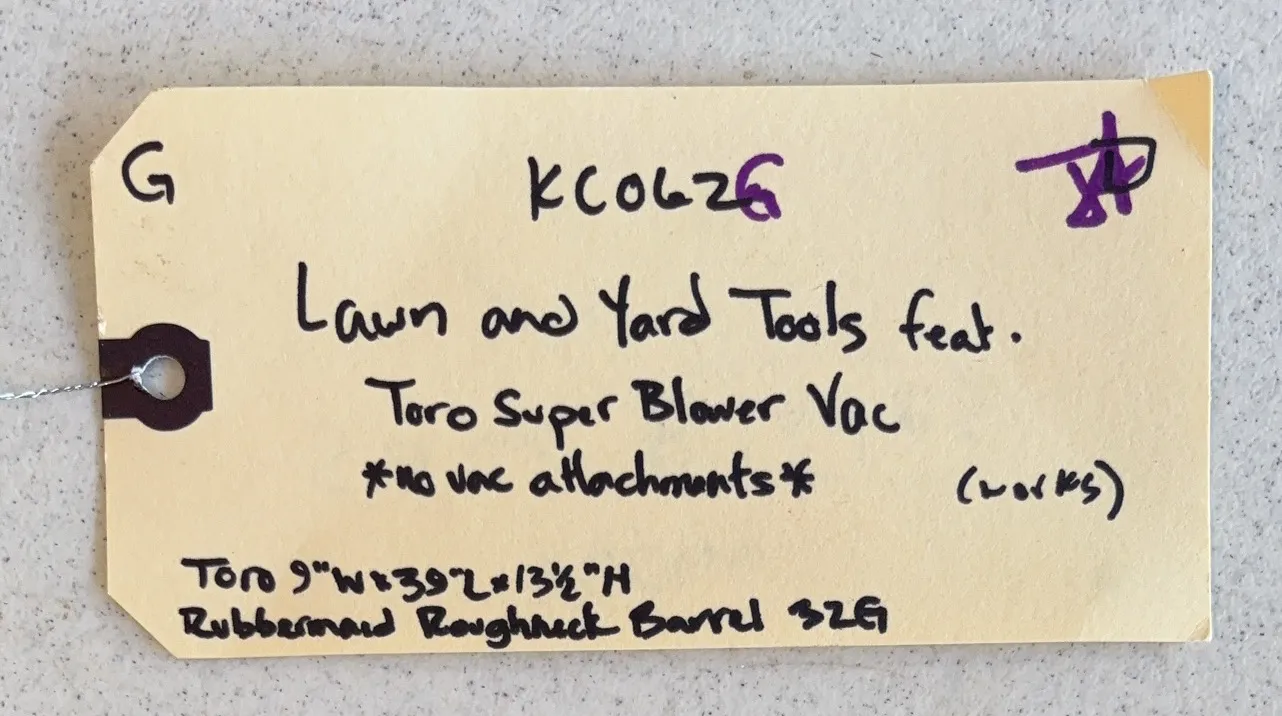 G
KC062G
Lawn and Yard Tools feat.
Toro Super Blower Vac
*no vac attachments*
(works)
Toro 9"W x 39"L x 13½"H
Rubbermaid Roughneck Barrel 32G